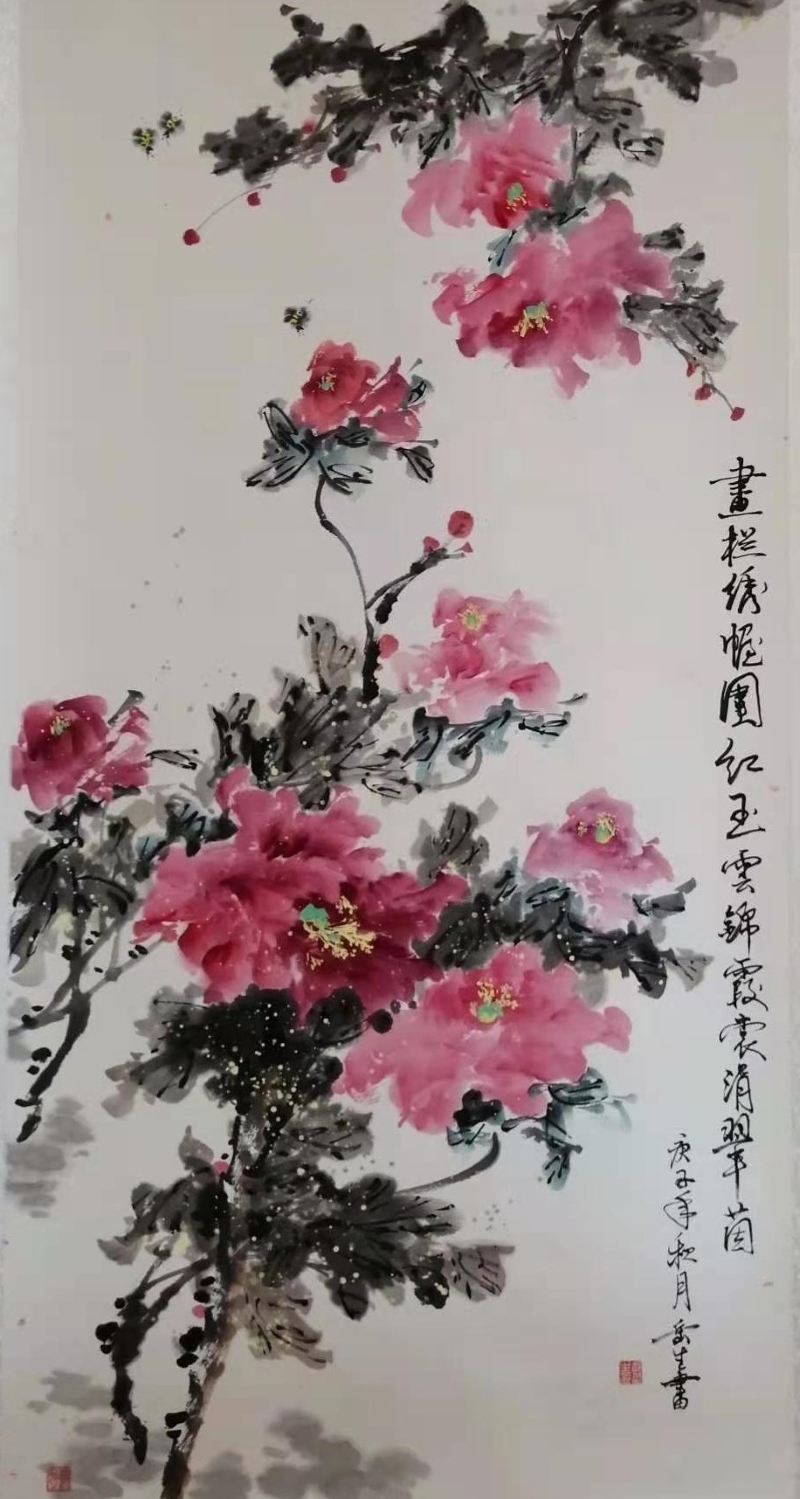 畫栏绣幄圍红玉雲錦霞裳涓翠茵
庚子年秋月
岳生畫